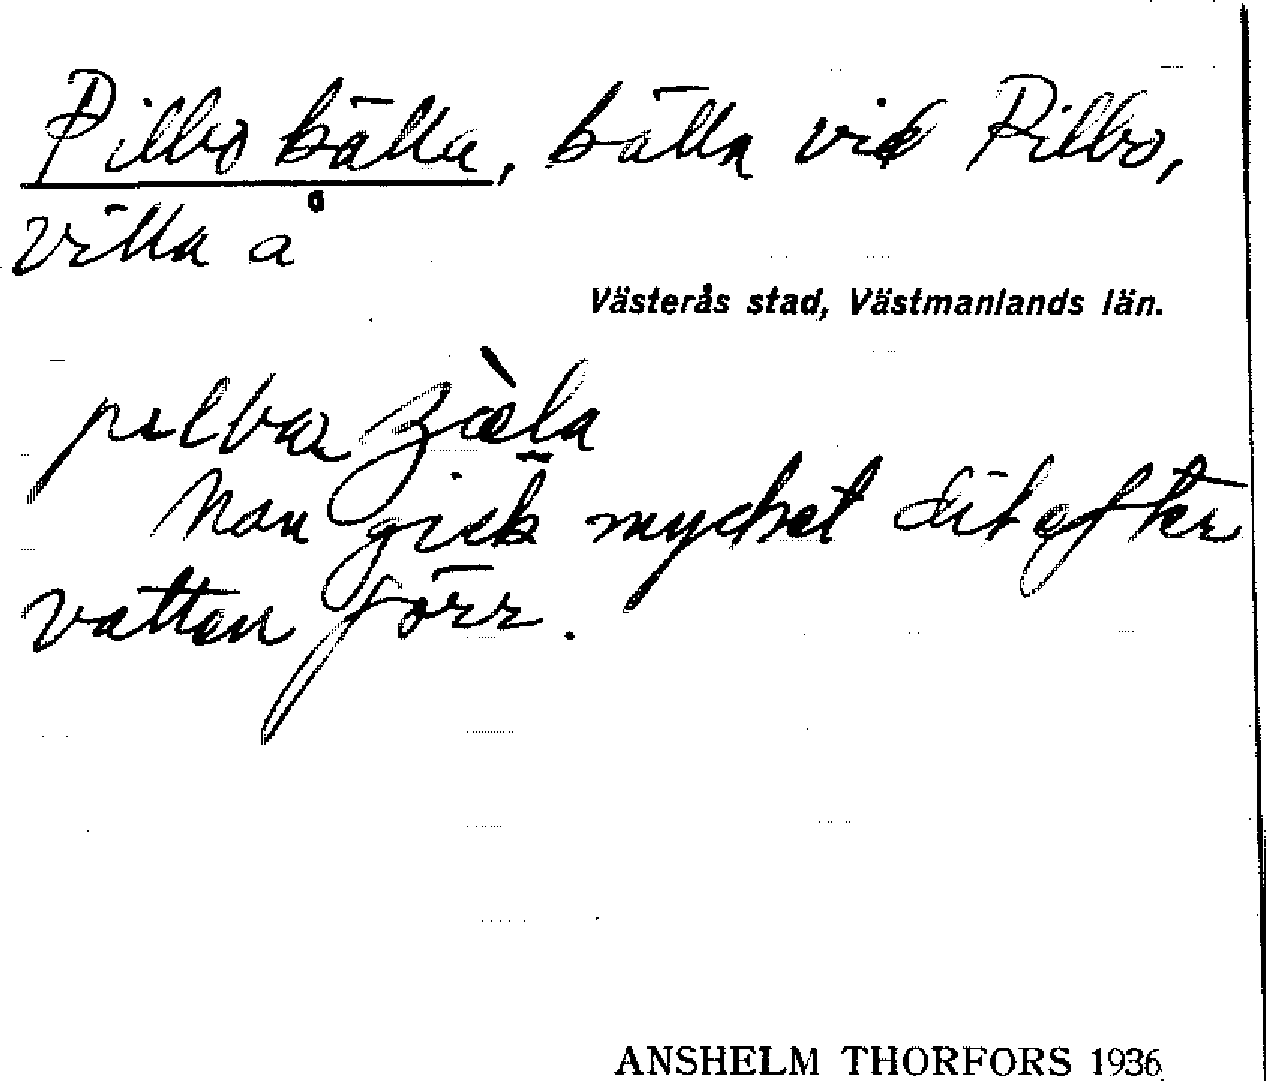 Pilbo källa, källa vid Pilbo,
villa å
Västerås stad, Västmanlands län.
Man gick mycket dit efter
vatten förr.
ANSHELM THORFORS 1936